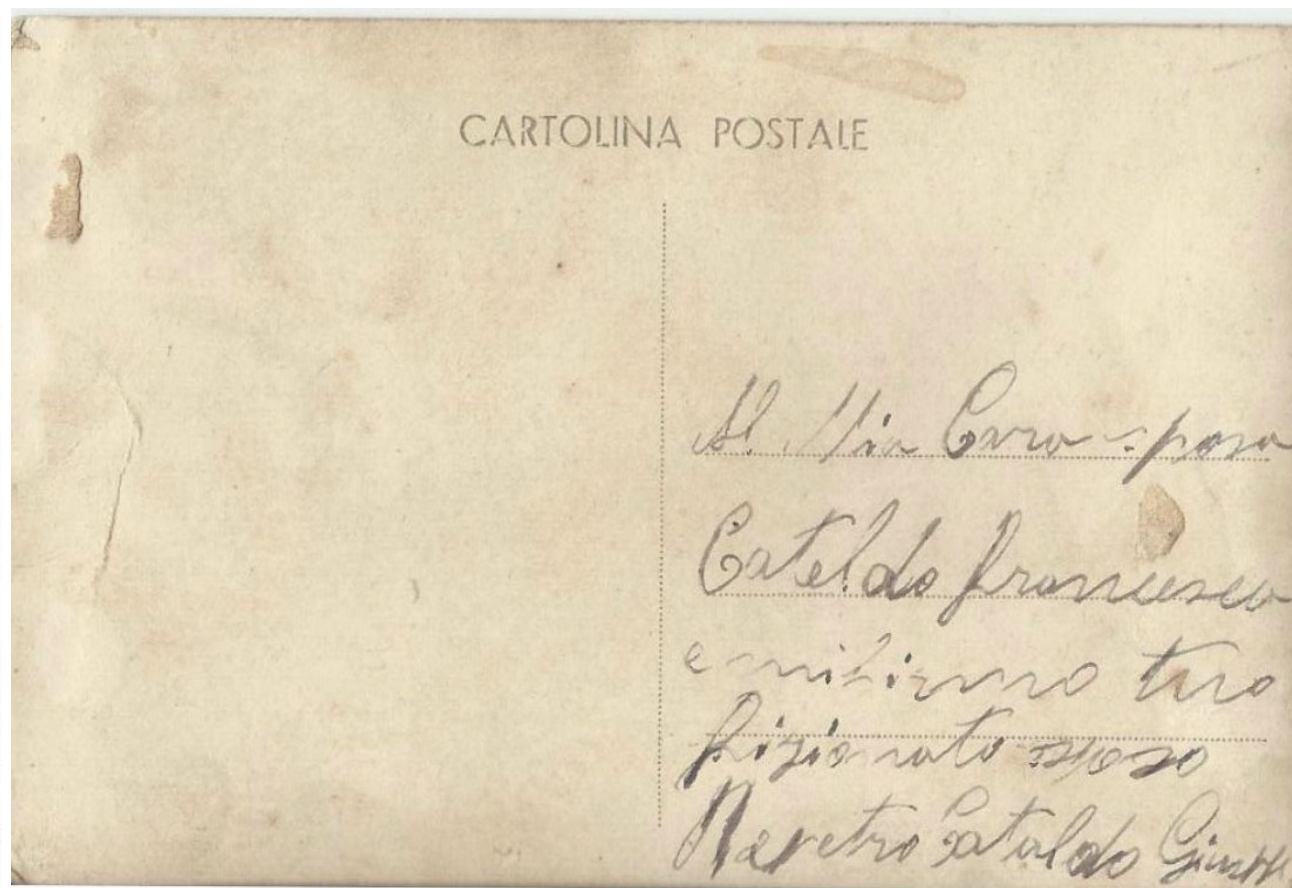 CARTOLINA POSTALE
Al Mio Caro sposo
Cataldo Francesco
e mi firmo tuo
fizionato sposo
Cataldo